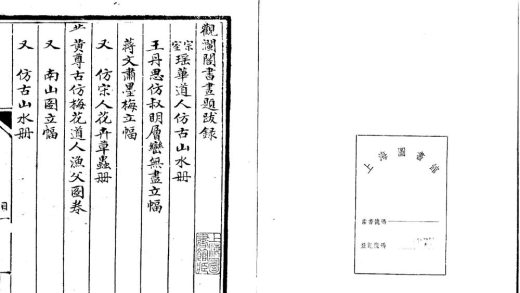 觀瀾閣書畫題跋錄
宗室瑤華道人仿古山水册
王丹思仿叔明層巒無盡立幅
蔣文肅墨梅立幅
又 仿宗人花卉草蟲册
黃尊古仿梅花道人漁父圖卷
又 南山圖立幅
又 仿古山水册
目
上海圖書館
索書號碼
登記號碼